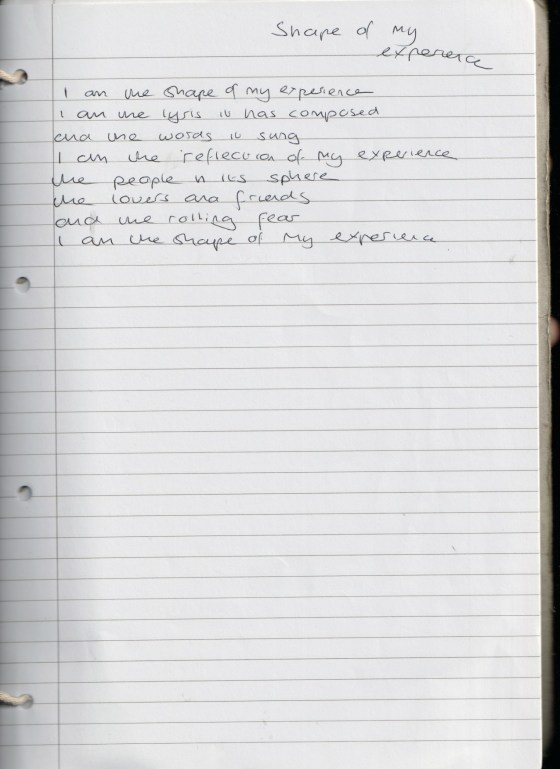 Shape of my
experience
I am the shape of my experience
I am the lyris it has composed
and the words it sung
I am the reflection of my experience
the people in its sphere
the lovers and friends
and the rolling fear
I am the shape of my experience